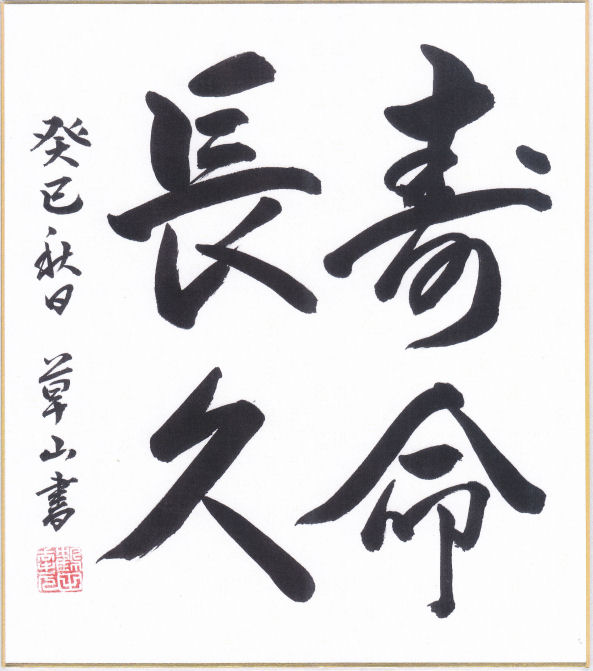 寿命
長久
癸巳秋日 草山書